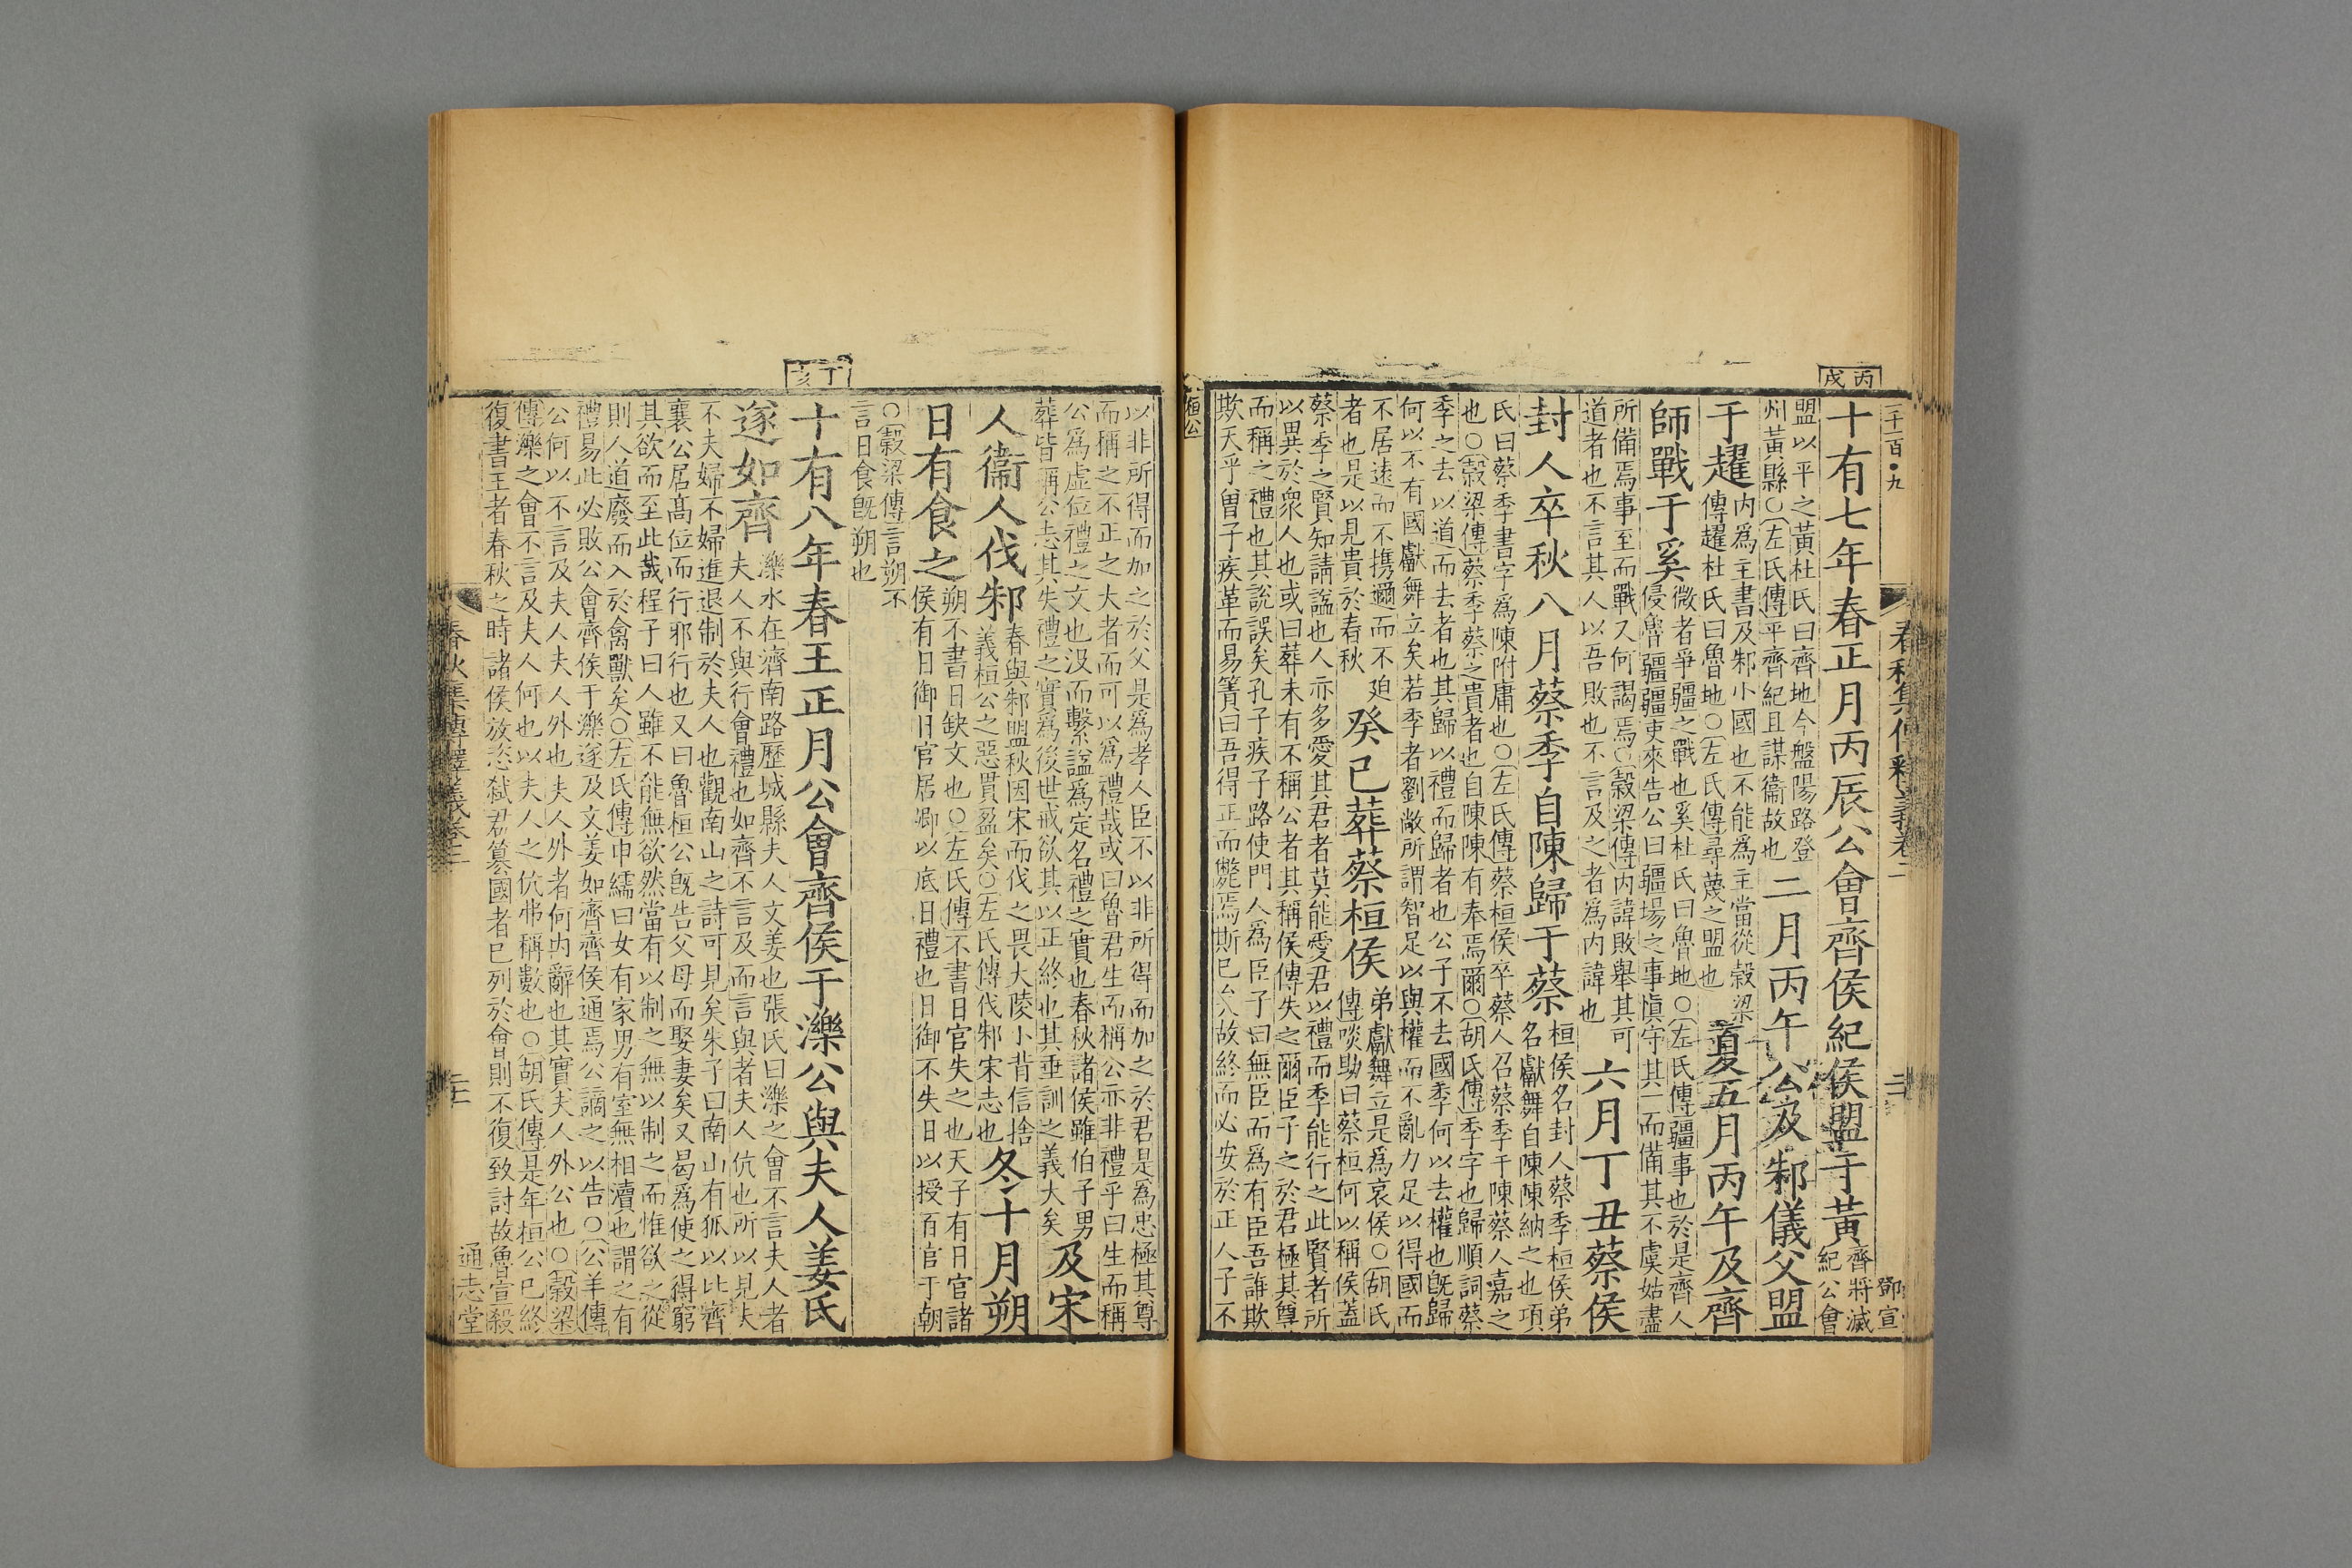 丙戌
二十一百·九
春秋集傳釋義卷二
鄧宣
十有七年春正月丙辰公會齊侯紀侯盟于黃
齊將滅
紀公會
盟以平之黃杜氏曰齊地今盤陽路登
州黃縣〇左氏傳平齊紀且謀衞故也
二月丙午公及邾儀父盟
于趡
內爲主書及邾小國也不能爲主當從穀梁
傳趡杜氏曰魯地〇左氏傳尋蔑之盟也
夏五月丙午及齊
師戰于奚
微者爭疆之戰也奚杜氏曰魯地〇左氏傳疆事也於是齊人
侵魯疆疆吏來告公曰疆場之事愼守其一而備其不虞姑盡
所備焉事至而戰又何謁焉〇穀梁傳內諱敗舉其可
道者也不言其人以吾敗也不言及之者爲內諱也
六月丁丑蔡侯
封人卒秋八月蔡季自陳歸于蔡
桓侯名封人蔡季桓侯弟
名獻舞自陳陳納之也項
氏曰蔡季書字爲陳附庸也〇左氏傳蔡桓侯卒蔡人召蔡季于陳蔡人嘉之
也〇穀梁傳蔡季蔡之貴者也自陳陳有奉焉爾〇胡氏傳季字也歸順詞蔡
季之去以道而去者也其歸以禮而歸者也公子不去國季何以去權也旣歸
何以不有國獻舞立矣若季者劉敞所謂智足以與權而不亂力足以得國而
不居遠而不攜邇而不廹
者也是以見貴於春秋
癸巳葬蔡桓侯
弟獻舞立是爲哀侯〇胡氏
傳啖助曰蔡桓何以稱侯蓋
蔡季之賢知請謚也人亦多愛其君者莫能愛君以禮而季能行之此賢者所
以異於衆人也或曰葬未有不稱公者其稱侯傳失之爾臣子之於君極其尊
而稱之禮也其說誤矣孔子疾子路使門人爲臣子曰無臣而爲有臣吾誰欺
欺天乎曾子疾革而易簀曰吾得正而斃焉斯已矣故終而必安於正人子不
桓公
以非所得而加之於父是爲孝人臣不以非所得而加之於君是爲忠極其尊
而稱之不正之大者而可以爲禮哉或曰魯君生而稱公亦非禮乎曰生而稱
公爲虛位禮之文也沒而繫謚爲定名禮之實也春秋諸侯雖伯子男
葬皆稱公志其失禮之實爲後世戒欲其以正終也其垂訓之義大矣
及宋
人衞人伐邾
春與邾盟秋因宋而伐之畏大陵小背信捨
義桓公之惡貫盈矣〇左氏傳伐邾宋志也
冬十月朔
日有食之
朔不書日缺文也〇左氏傳不書日官失之也天子有日官諸
侯有日御日官居卿以底日禮也日御不失日以授百官于朝
〇穀梁傳言朔不
言日食旣朔也
丁亥
十有八年春王正月公會齊侯于濼公與夫人姜氏
遂如齊
濼水在濟南路歷城縣夫人文姜也張氏曰濼之會不言夫人者
夫人不與行會禮也如齊不言及而言與者夫人伉也所以見夫
不夫婦不婦進退制於夫人也觀南山之詩可見矣朱子曰南山有狐以比齊
襄公居高位而行邪行也又曰魯桓公旣告父母而娶妻矣又曷爲使之得窮
其欲而至此哉程子曰人雖不能無欲然當有以制之無以制之而惟欲之從
則人道廢而入於禽獸矣〇左氏傳申繻曰女有家男有室無相瀆也謂之有
禮易此必敗公會齊侯于濼遂及文姜如齊齊侯通焉公謫之以告〇公羊傳
公何以不言及夫人夫人外也夫人外者何內辭也其實夫人外公也〇穀梁
傳濼之會不言及夫人何也以夫人之伉弗稱數也〇胡氏傳是年桓公已終
復書王者春秋之時諸侯放恣弑君篡國者已列於會則不復致討故魯宣殺
春秋集傳釋義卷二
通志堂